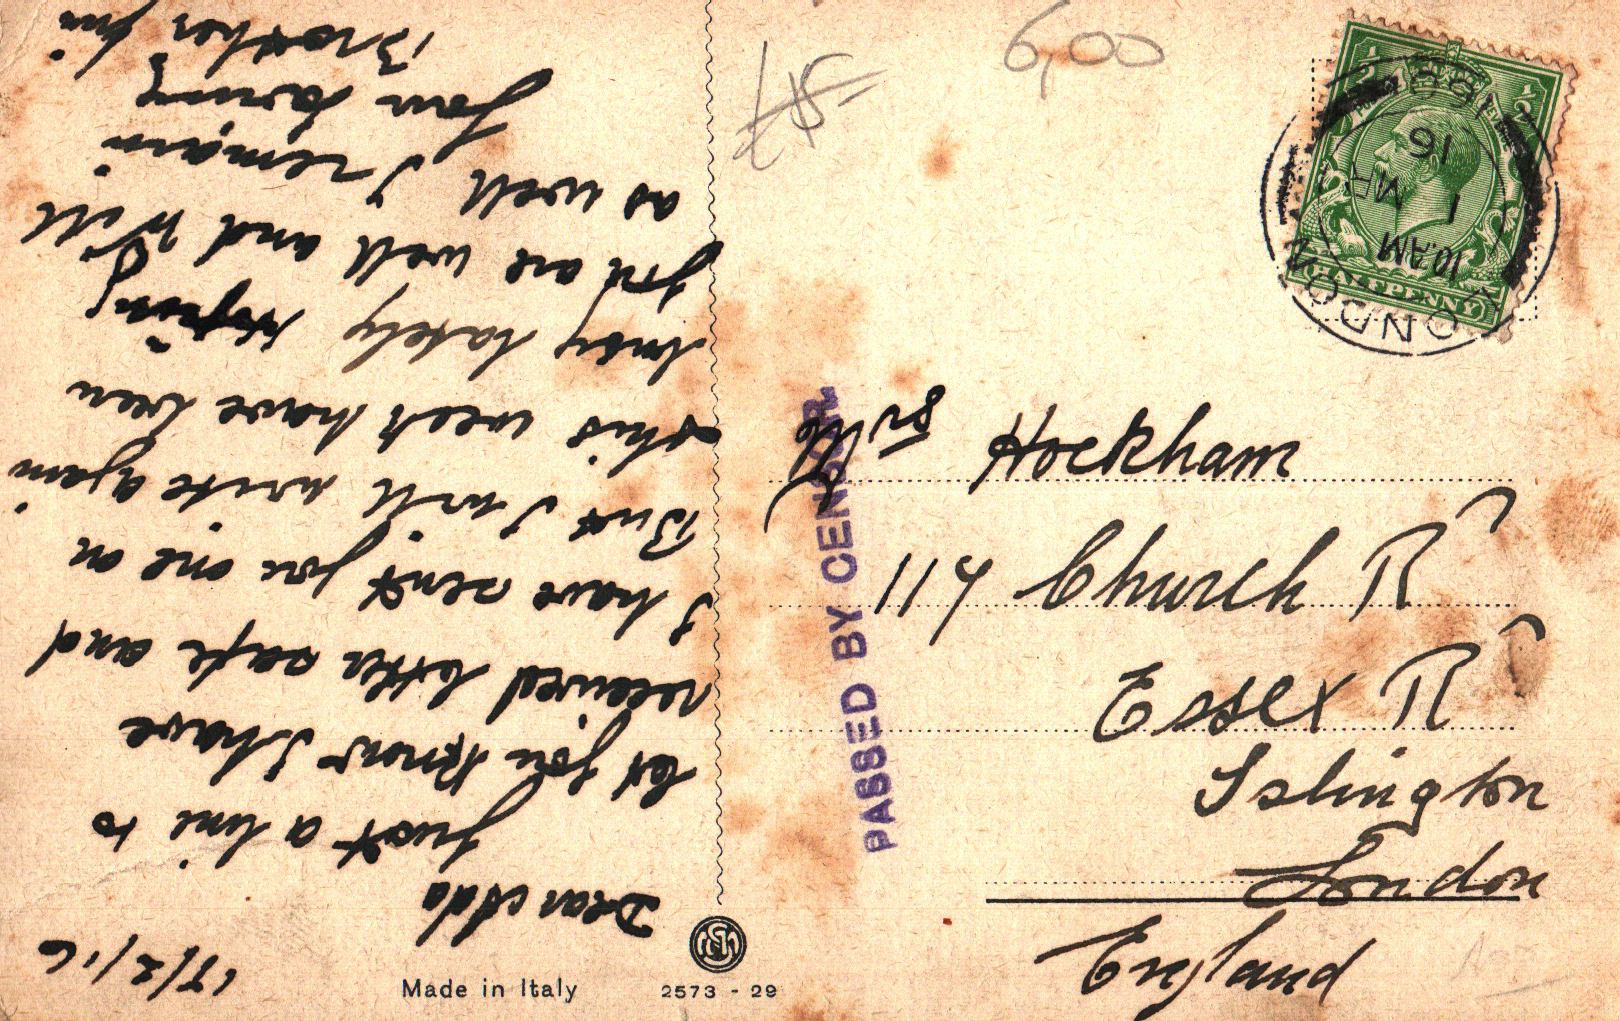 17/2/16
Dear Ada
just a line to
let you know I have
received letter safe and
I have sent you one on
But I will write again
this week have been
busy lately hoping
you are well and Will
as well I remain
your loving
Brother Jim
Made in Italy
2573 - 29
PASSED BY CENSOR.
6,00
£15-
½ ½
HALFPENNY
LONDON
10.AM
1
MR
16
Hockham
114 Church Rd
Essex Rd
Islington
London
England